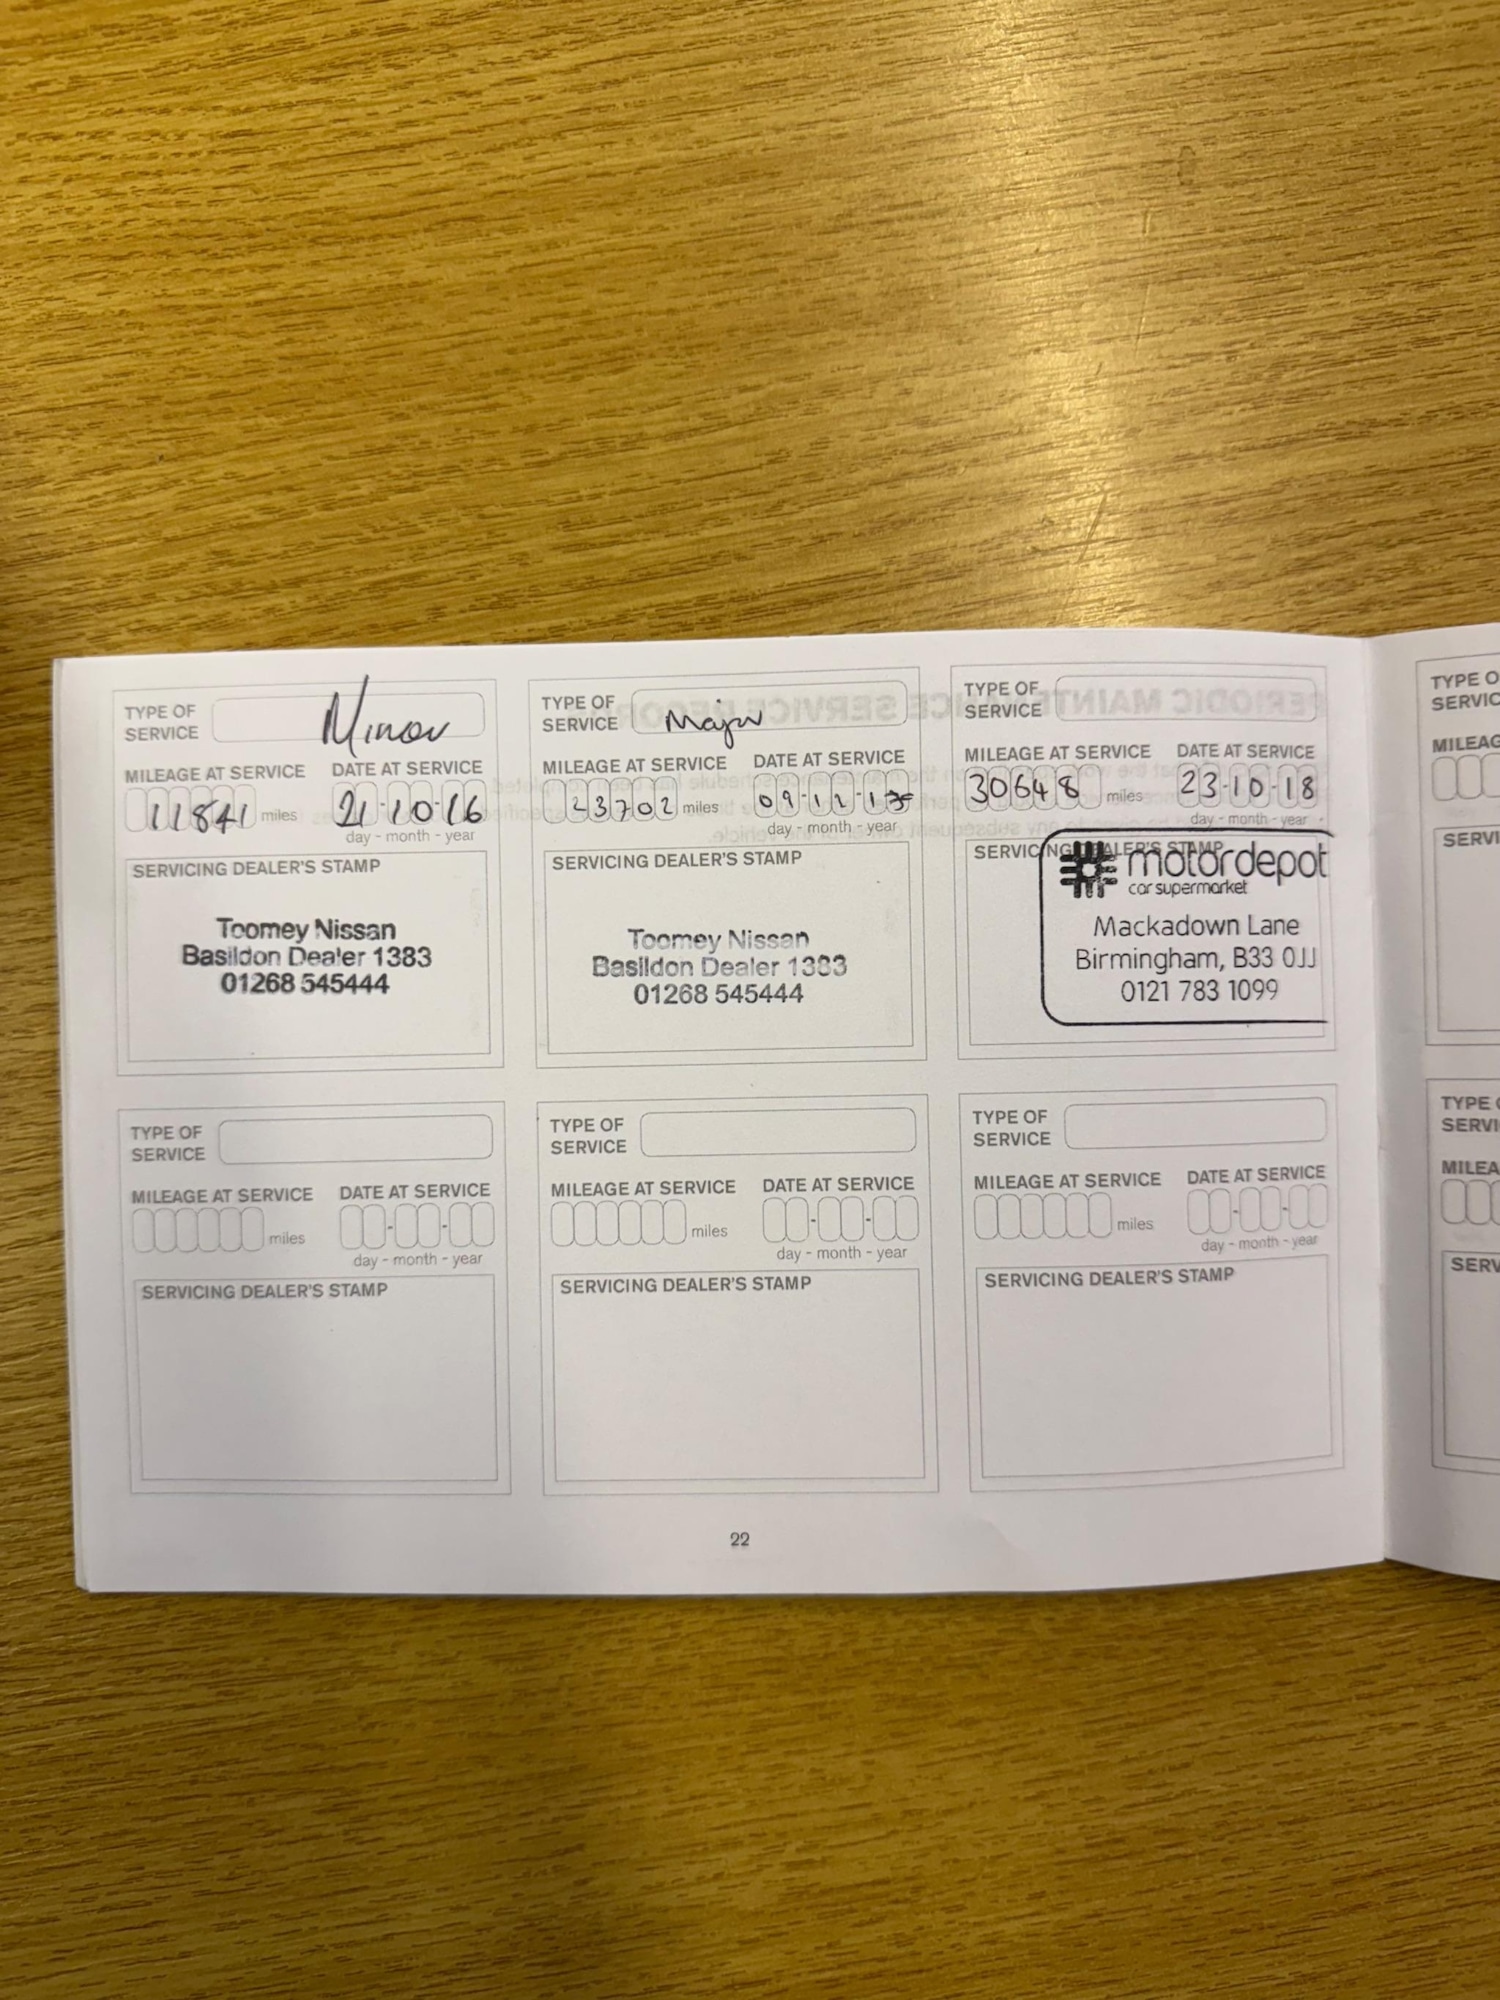 TYPE OF
SERVICE Minor
MILEAGE AT SERVICE DATE AT SERVICE
11841 miles 21-10-16
day - month - year
SERVICING DEALER'S STAMP
Toomey Nissan
Basildon Dealer 1383
01268 545444
TYPE OF
SERVICE Major
MILEAGE AT SERVICE DATE AT SERVICE
23702 miles 09-12-17
day - month - year
SERVICING DEALER'S STAMP
Toomey Nissan
Basildon Dealer 1383
01268 545444
TYPE OF
SERVICE
MILEAGE AT SERVICE DATE AT SERVICE
30648 miles 23-10-18
day - month - year
SERVICING DEALER'S STAMP
motordepot
car supermarket
Mackadown Lane
Birmingham, B33 0JJ
0121 783 1099
TYPE OF
SERVICE
MILEAGE AT SERVICE DATE AT SERVICE
miles - -
day - month - year
SERVICING DEALER'S STAMP
TYPE OF
SERVICE
MILEAGE AT SERVICE DATE AT SERVICE
miles - -
day - month - year
SERVICING DEALER'S STAMP
TYPE OF
SERVICE
MILEAGE AT SERVICE DATE AT SERVICE
miles - -
day - month - year
SERVICING DEALER'S STAMP
22
TYPE O
SERVIC
MILEAG
SERVI
TYPE
SERVI
MILEA
SERV